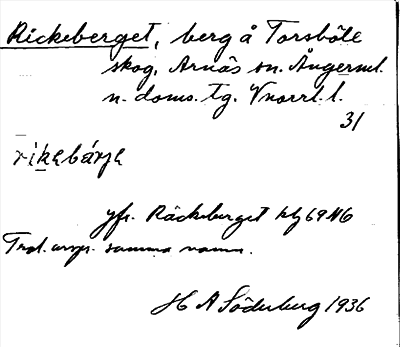 Rickeberget, berg å Torsböle
skog, Arnäs sn. Ångerml.
n. doms. tg. Vnorrl. l.
31
jfr. Räckeberget
Trol. urspr. samma namn.
H A Söderberg 1936